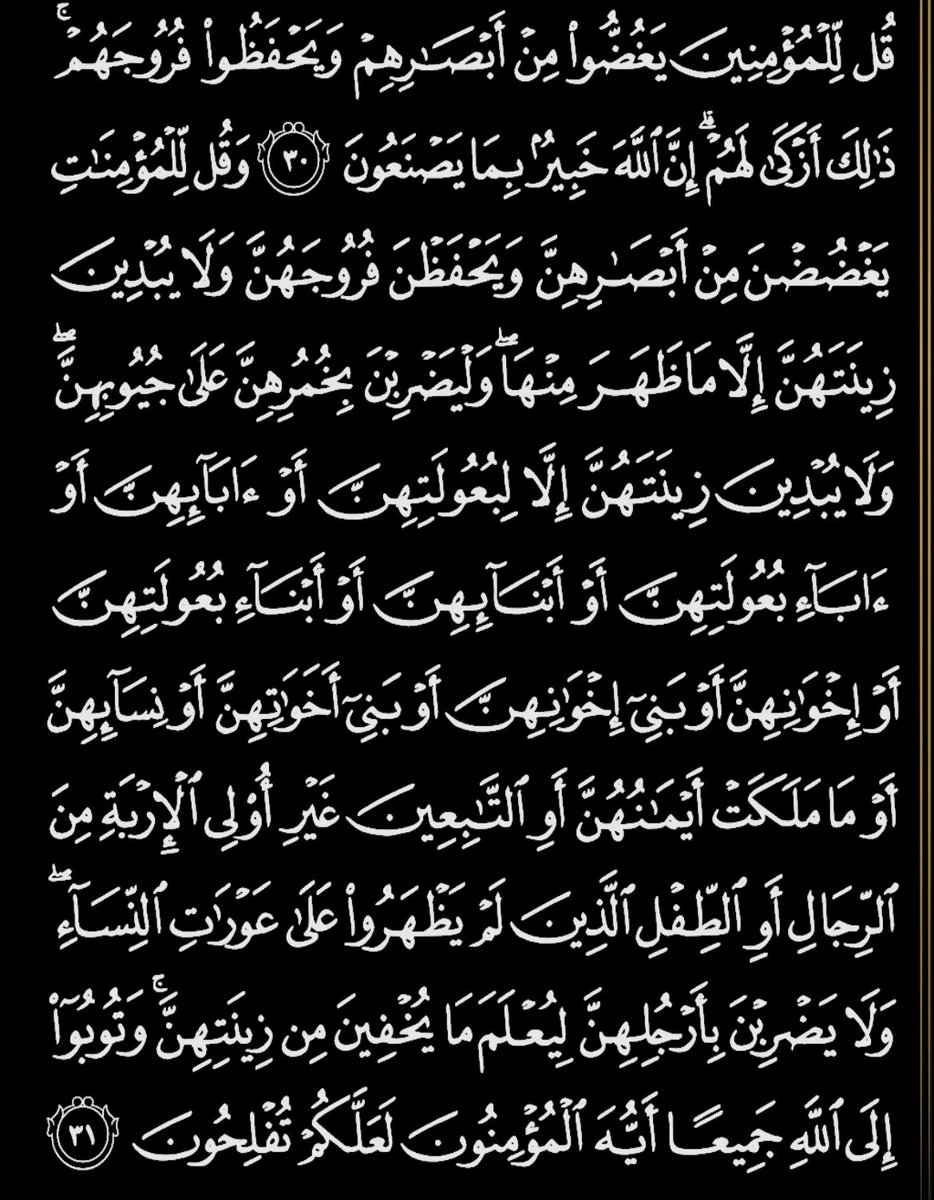 قُل لِّلْمُؤْمِنِينَ يَغُضُّوا۟ مِنْ أَبْصَـٰرِهِمْ وَيَحْفَظُوا۟ فُرُوجَهُمْ ۚ
ذَٰلِكَ أَزْكَىٰ لَهُمْ ۗ إِنَّ ٱللَّهَ خَبِيرٌۢ بِمَا يَصْنَعُونَ ٣٠ وَقُل لِّلْمُؤْمِنَـٰتِ
يَغْضُضْنَ مِنْ أَبْصَـٰرِهِنَّ وَيَحْفَظْنَ فُرُوجَهُنَّ وَلَا يُبْدِينَ
زِينَتَهُنَّ إِلَّا مَا ظَهَرَ مِنْهَا ۖ وَلْيَضْرِبْنَ بِخُمُرِهِنَّ عَلَىٰ جُيُوبِهِنَّ ۖ
وَلَا يُبْدِينَ زِينَتَهُنَّ إِلَّا لِبُعُولَتِهِنَّ أَوْ ءَابَآئِهِنَّ أَوْ
ءَابَآءِ بُعُولَتِهِنَّ أَوْ أَبْنَآئِهِنَّ أَوْ أَبْنَآءِ بُعُولَتِهِنَّ
أَوْ إِخْوَٰنِهِنَّ أَوْ بَنِىٓ إِخْوَٰنِهِنَّ أَوْ بَنِىٓ أَخَوَٰتِهِنَّ أَوْ نِسَآئِهِنَّ
أَوْ مَا مَلَكَتْ أَيْمَـٰنُهُنَّ أَوِ ٱلتَّـٰبِعِينَ غَيْرِ أُو۟لِى ٱلْإِرْبَةِ مِنَ
ٱلرِّجَالِ أَوِ ٱلطِّفْلِ ٱلَّذِينَ لَمْ يَظْهَرُوا۟ عَلَىٰ عَوْرَٰتِ ٱلنِّسَآءِ ۖ
وَلَا يَضْرِبْنَ بِأَرْجُلِهِنَّ لِيُعْلَمَ مَا يُخْفِينَ مِن زِينَتِهِنَّ ۚ وَتُوبُوٓا۟
إِلَى ٱللَّهِ جَمِيعًا أَيُّهَ ٱلْمُؤْمِنُونَ لَعَلَّكُمْ تُفْلِحُونَ ٣١